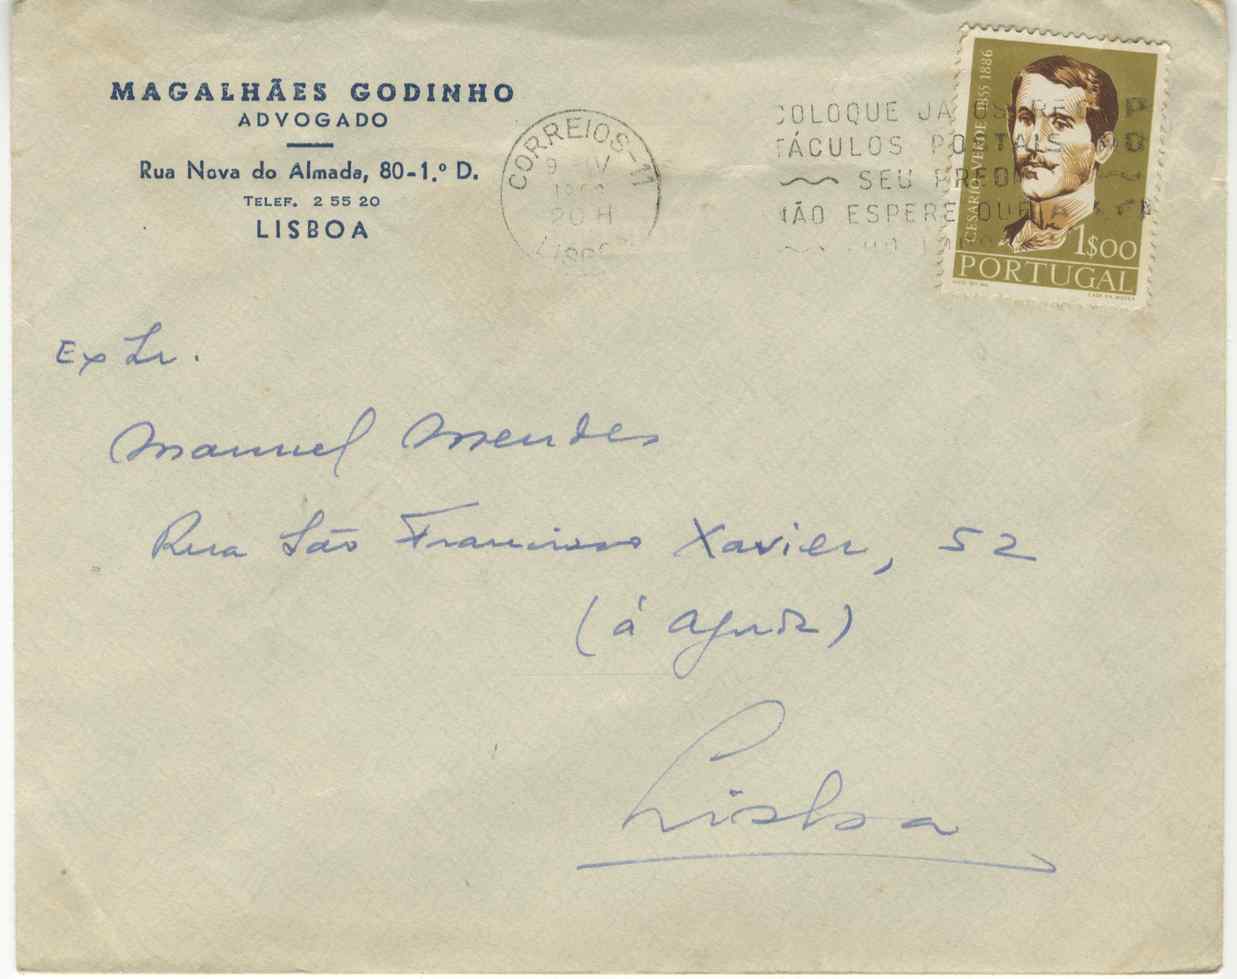 MAGALHÃES GODINHO
ADVOGADO
Rua Nova do Almada, 80-1.º D.
TELEF. 2 55 20
LISBOA
CORREIOS-11
20 H
COLOQUE JÁ OS REC P
TÁCULOS POSTAIS NO
SEU PREDI
NÃO ESPERE QUE A
CESARIO VERDE 1855 1886
1$00
PORTUGAL
Ex Sr.
Manuel Mendes
Rua São Francisco Xavier, 52
(á Ajuda)
Lisboa